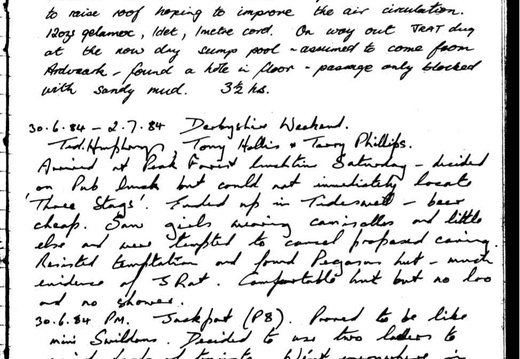 to raise roof hoping to improve the air circulation.
12ozs gelamex, 1det, 1metre cord. On way out TRAT dug
at the now dry sump pool - assumed to come from
Aardvark - found a hole in floor - passage only blocked
with sandy mud. 3½ hs.
30.6.84 - 2.7.84 Derbyshire Weekend.
Humphrey, Tony Hollis & Terry Phillips.
Arrived at Peak Forest lunchtime Saturday - decided
on Pub lunch but could not immediately locate
'Three Stags'. Ended up in Tideswell - beer
cheap. Saw girls wearing camisoles and little
else and were tempted to cancel proposed caving.
Resisted temptation and found Pegasus hut - much
evidence of S Rat. Comfortable hut but no loo
and no shower.
30.6.84 PM. Jackpot (P8). Proved to be like
mini Swildons. Decided to use two ladders to
avoid